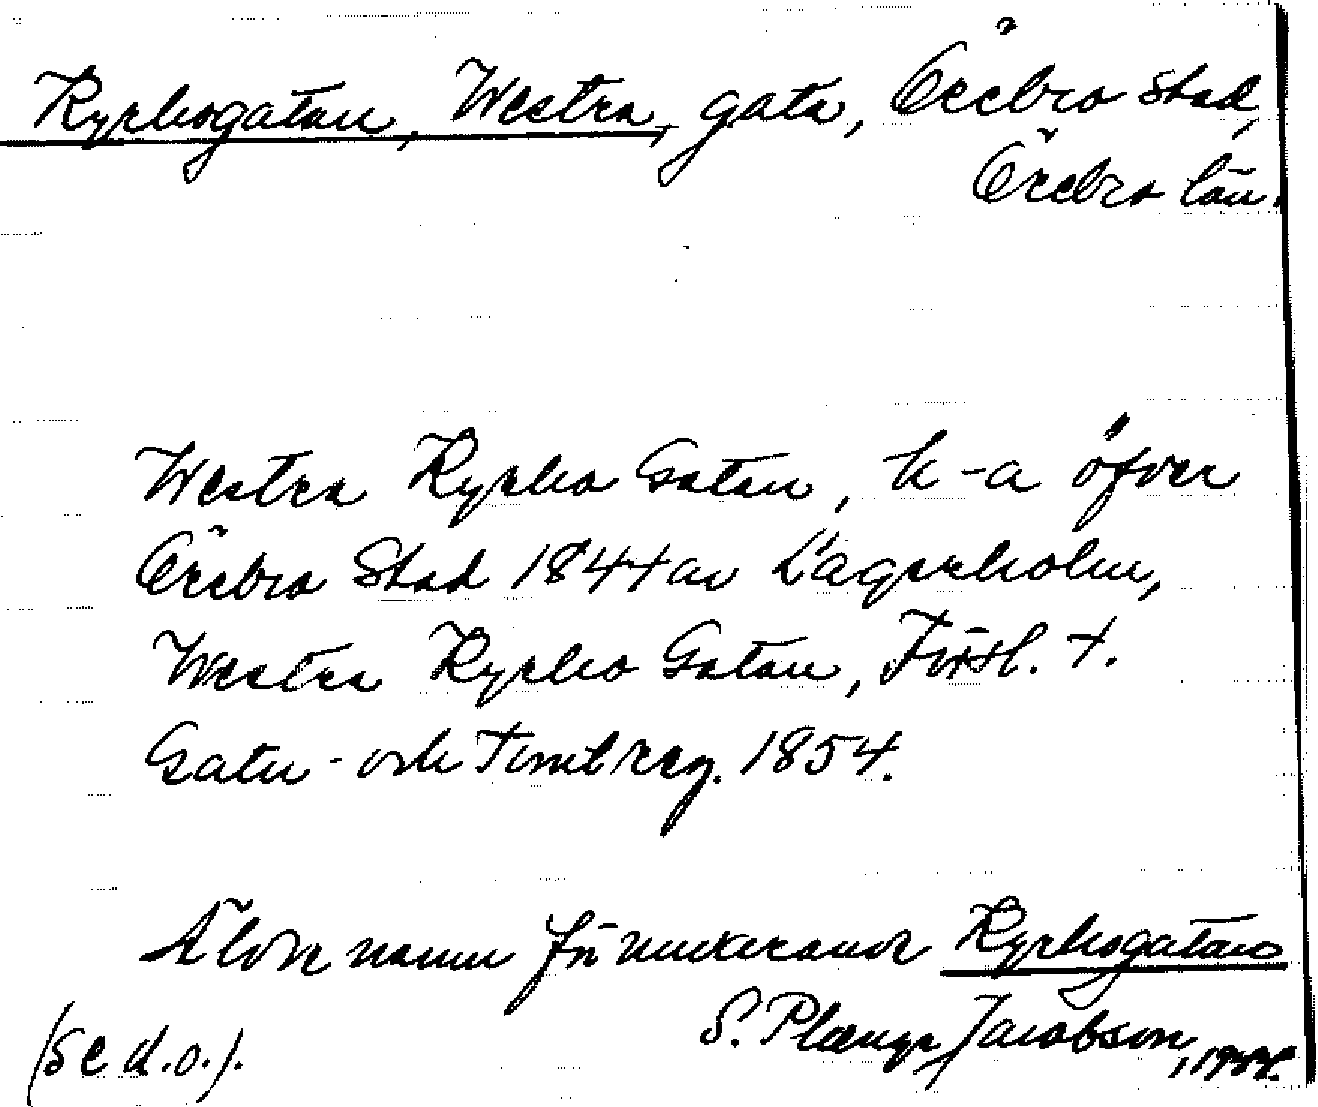 Kyrkogatan, Westra, gata, Örebro stad,
Örebro län.
Westra Kyrko Gatan, k-a öfver
Örebro Stad 1844 av Lagerholm,
Westra Kyrko Gatan, Försl. t.
Gatu- och Tomtreg. 1854.
Äldre namn för nuvarande Kyrkogatan
(se d.o.). S. Plænge Jacobson,